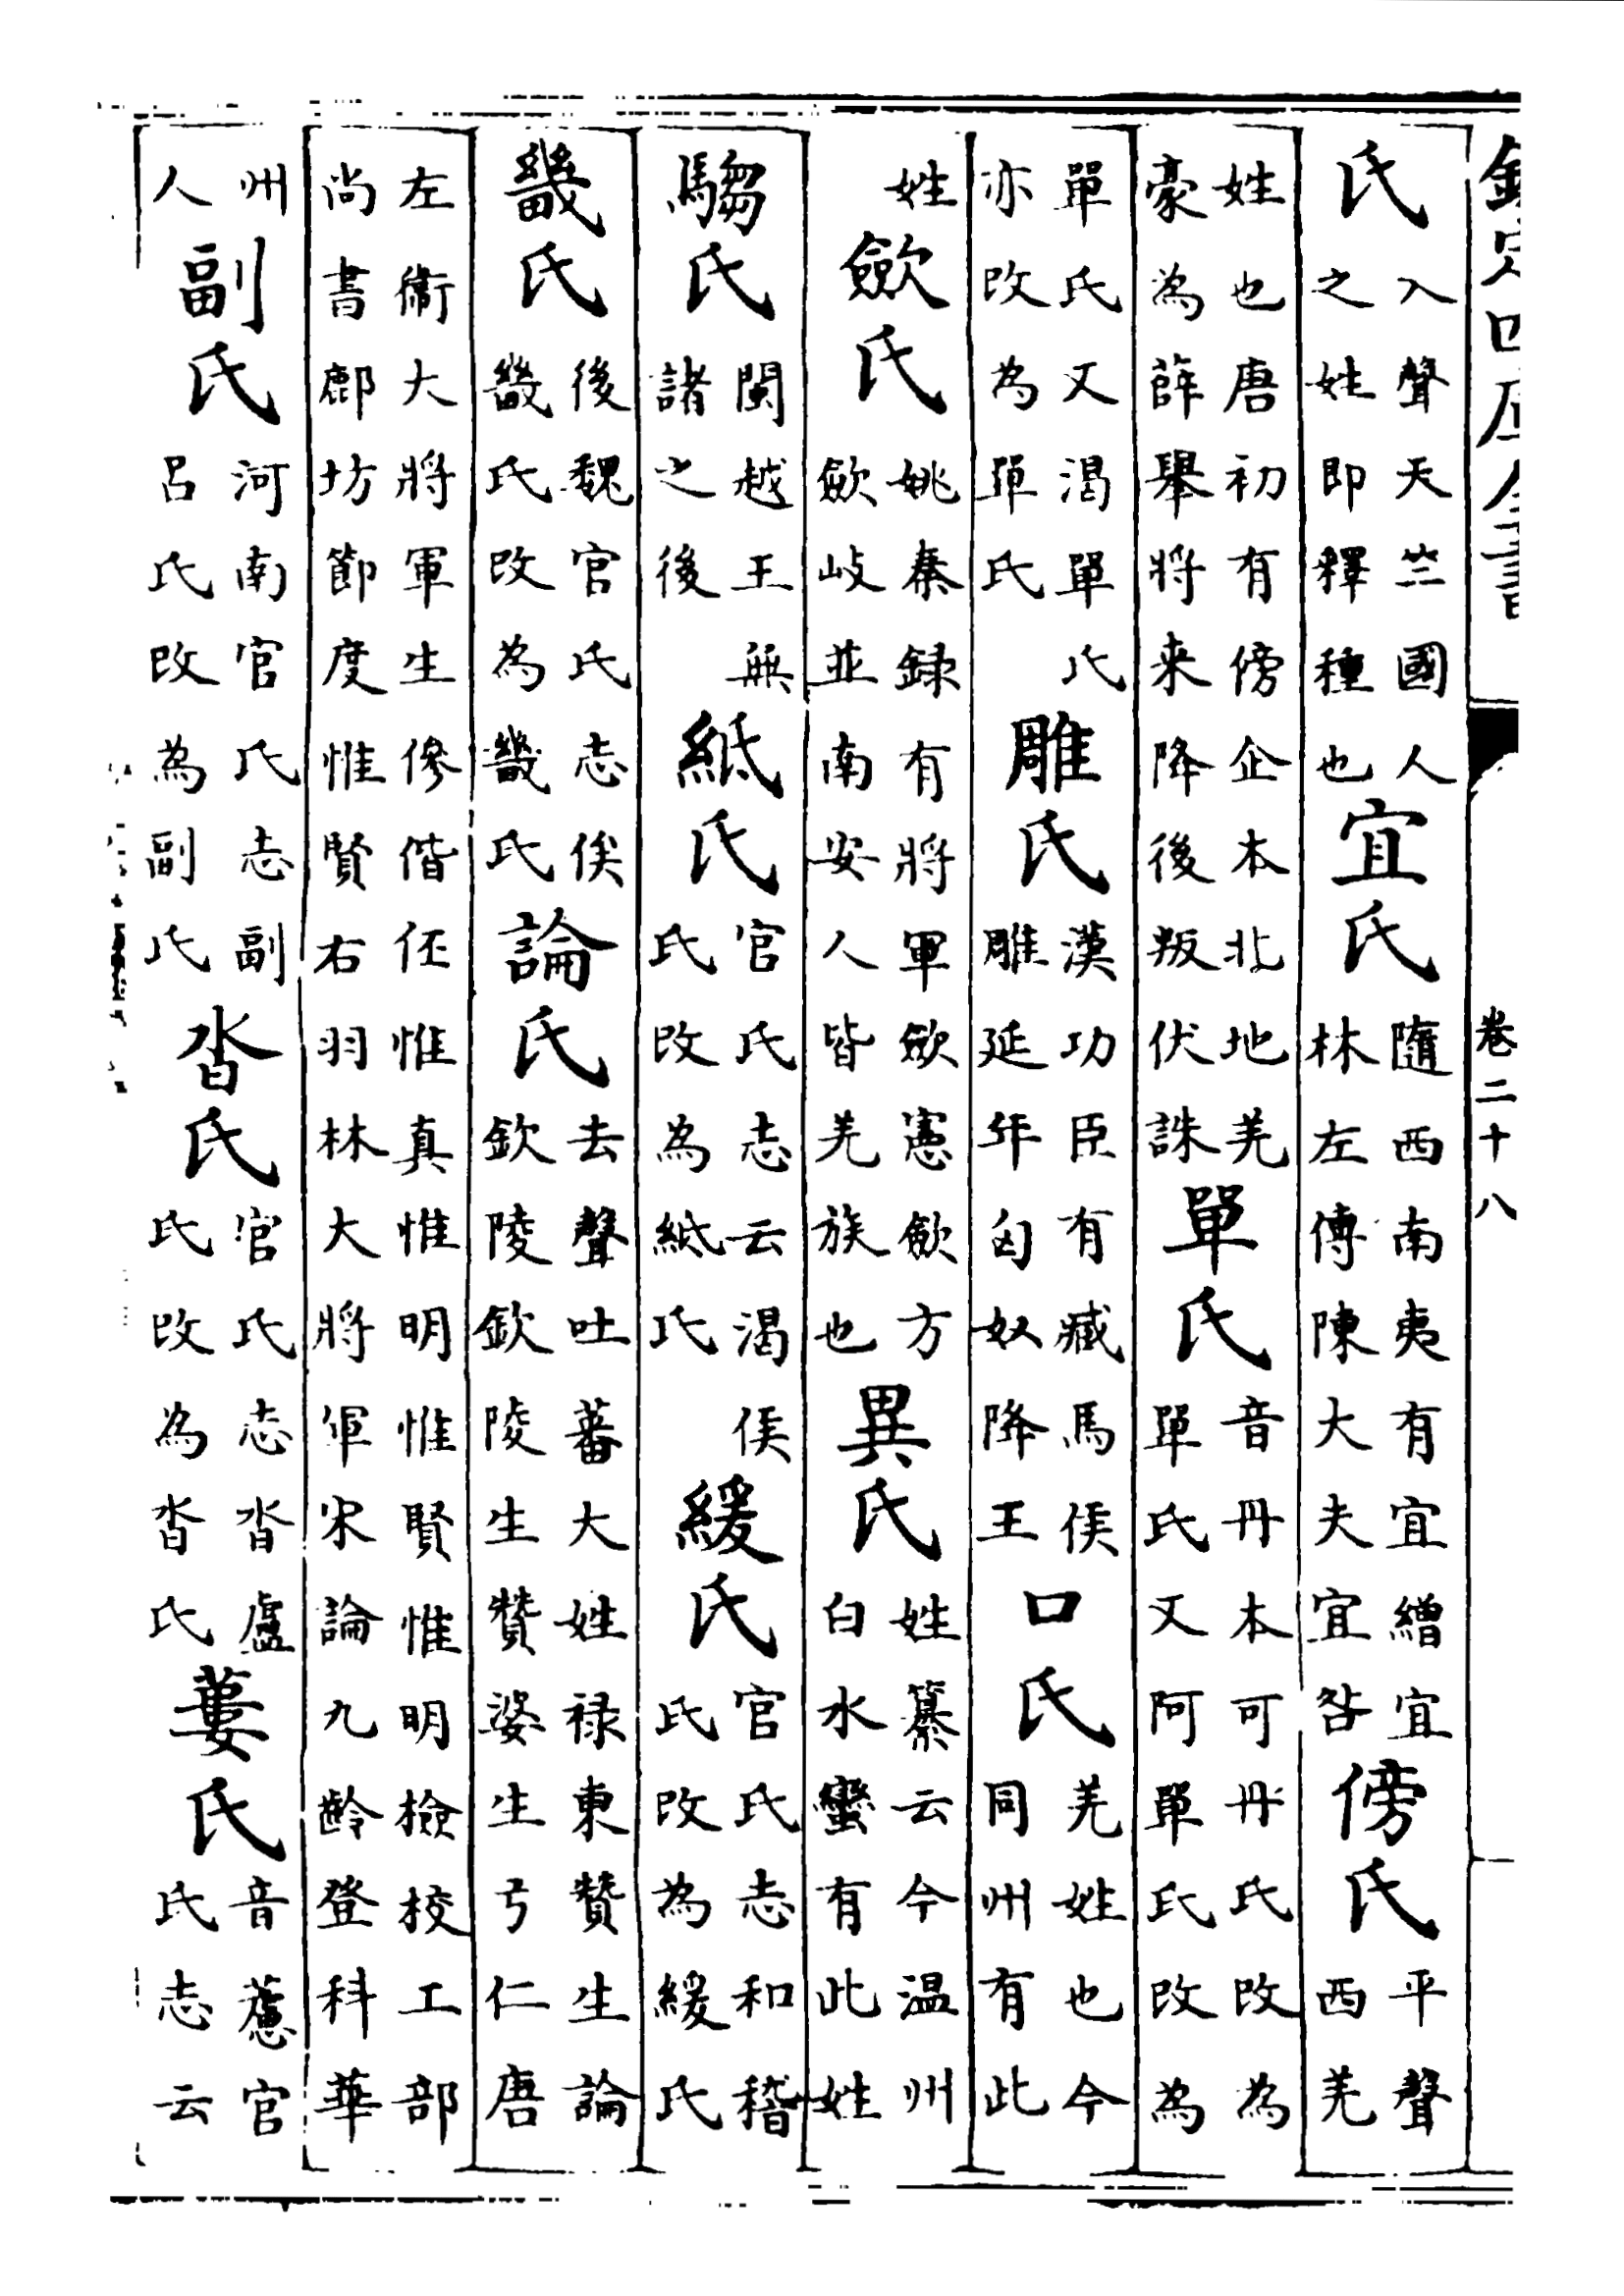 欽定四庫全書　卷二十八
氏入聲天竺國人之姓即釋種也宜氏隨西南夷有宜繒宜林左傳陳大夫宜咎傍氏平聲西羌
姓也唐初有傍企本北地羌豪為薛舉將来降後叛伏誅單氏音丹本可丹氏改為單氏又阿單氏改為
單氏又渴單氏亦改為單氏雕氏漢功臣有臧馬侯雕延年匈奴降王口氏羌姓也今同州有此
姓歛氏姚秦録有將軍歛憲歛方歛岐並南安人皆羌族也異氏姓纂云今温州白水蠻有此姓
騶氏閩越王無諸之後紙氏官氏志云渴侯氏改為紙氏緩氏官氏志和稽氏改為緩氏
畿氏後魏官氏志俟畿氏改為畿氏論氏去聲吐蕃大姓禄東賛生論欽陵欽陵生賛婆生弓仁唐
左衛大將軍生俢偕任惟真惟明惟賢惟明檢校工部尚書鄜坊節度惟賢右羽林大將軍宋論九齡登科華
州人副氏河南官氏志副呂氏改為副氏沓氏官氏志沓盧氏改為沓氏蔞氏音藘官氏志云